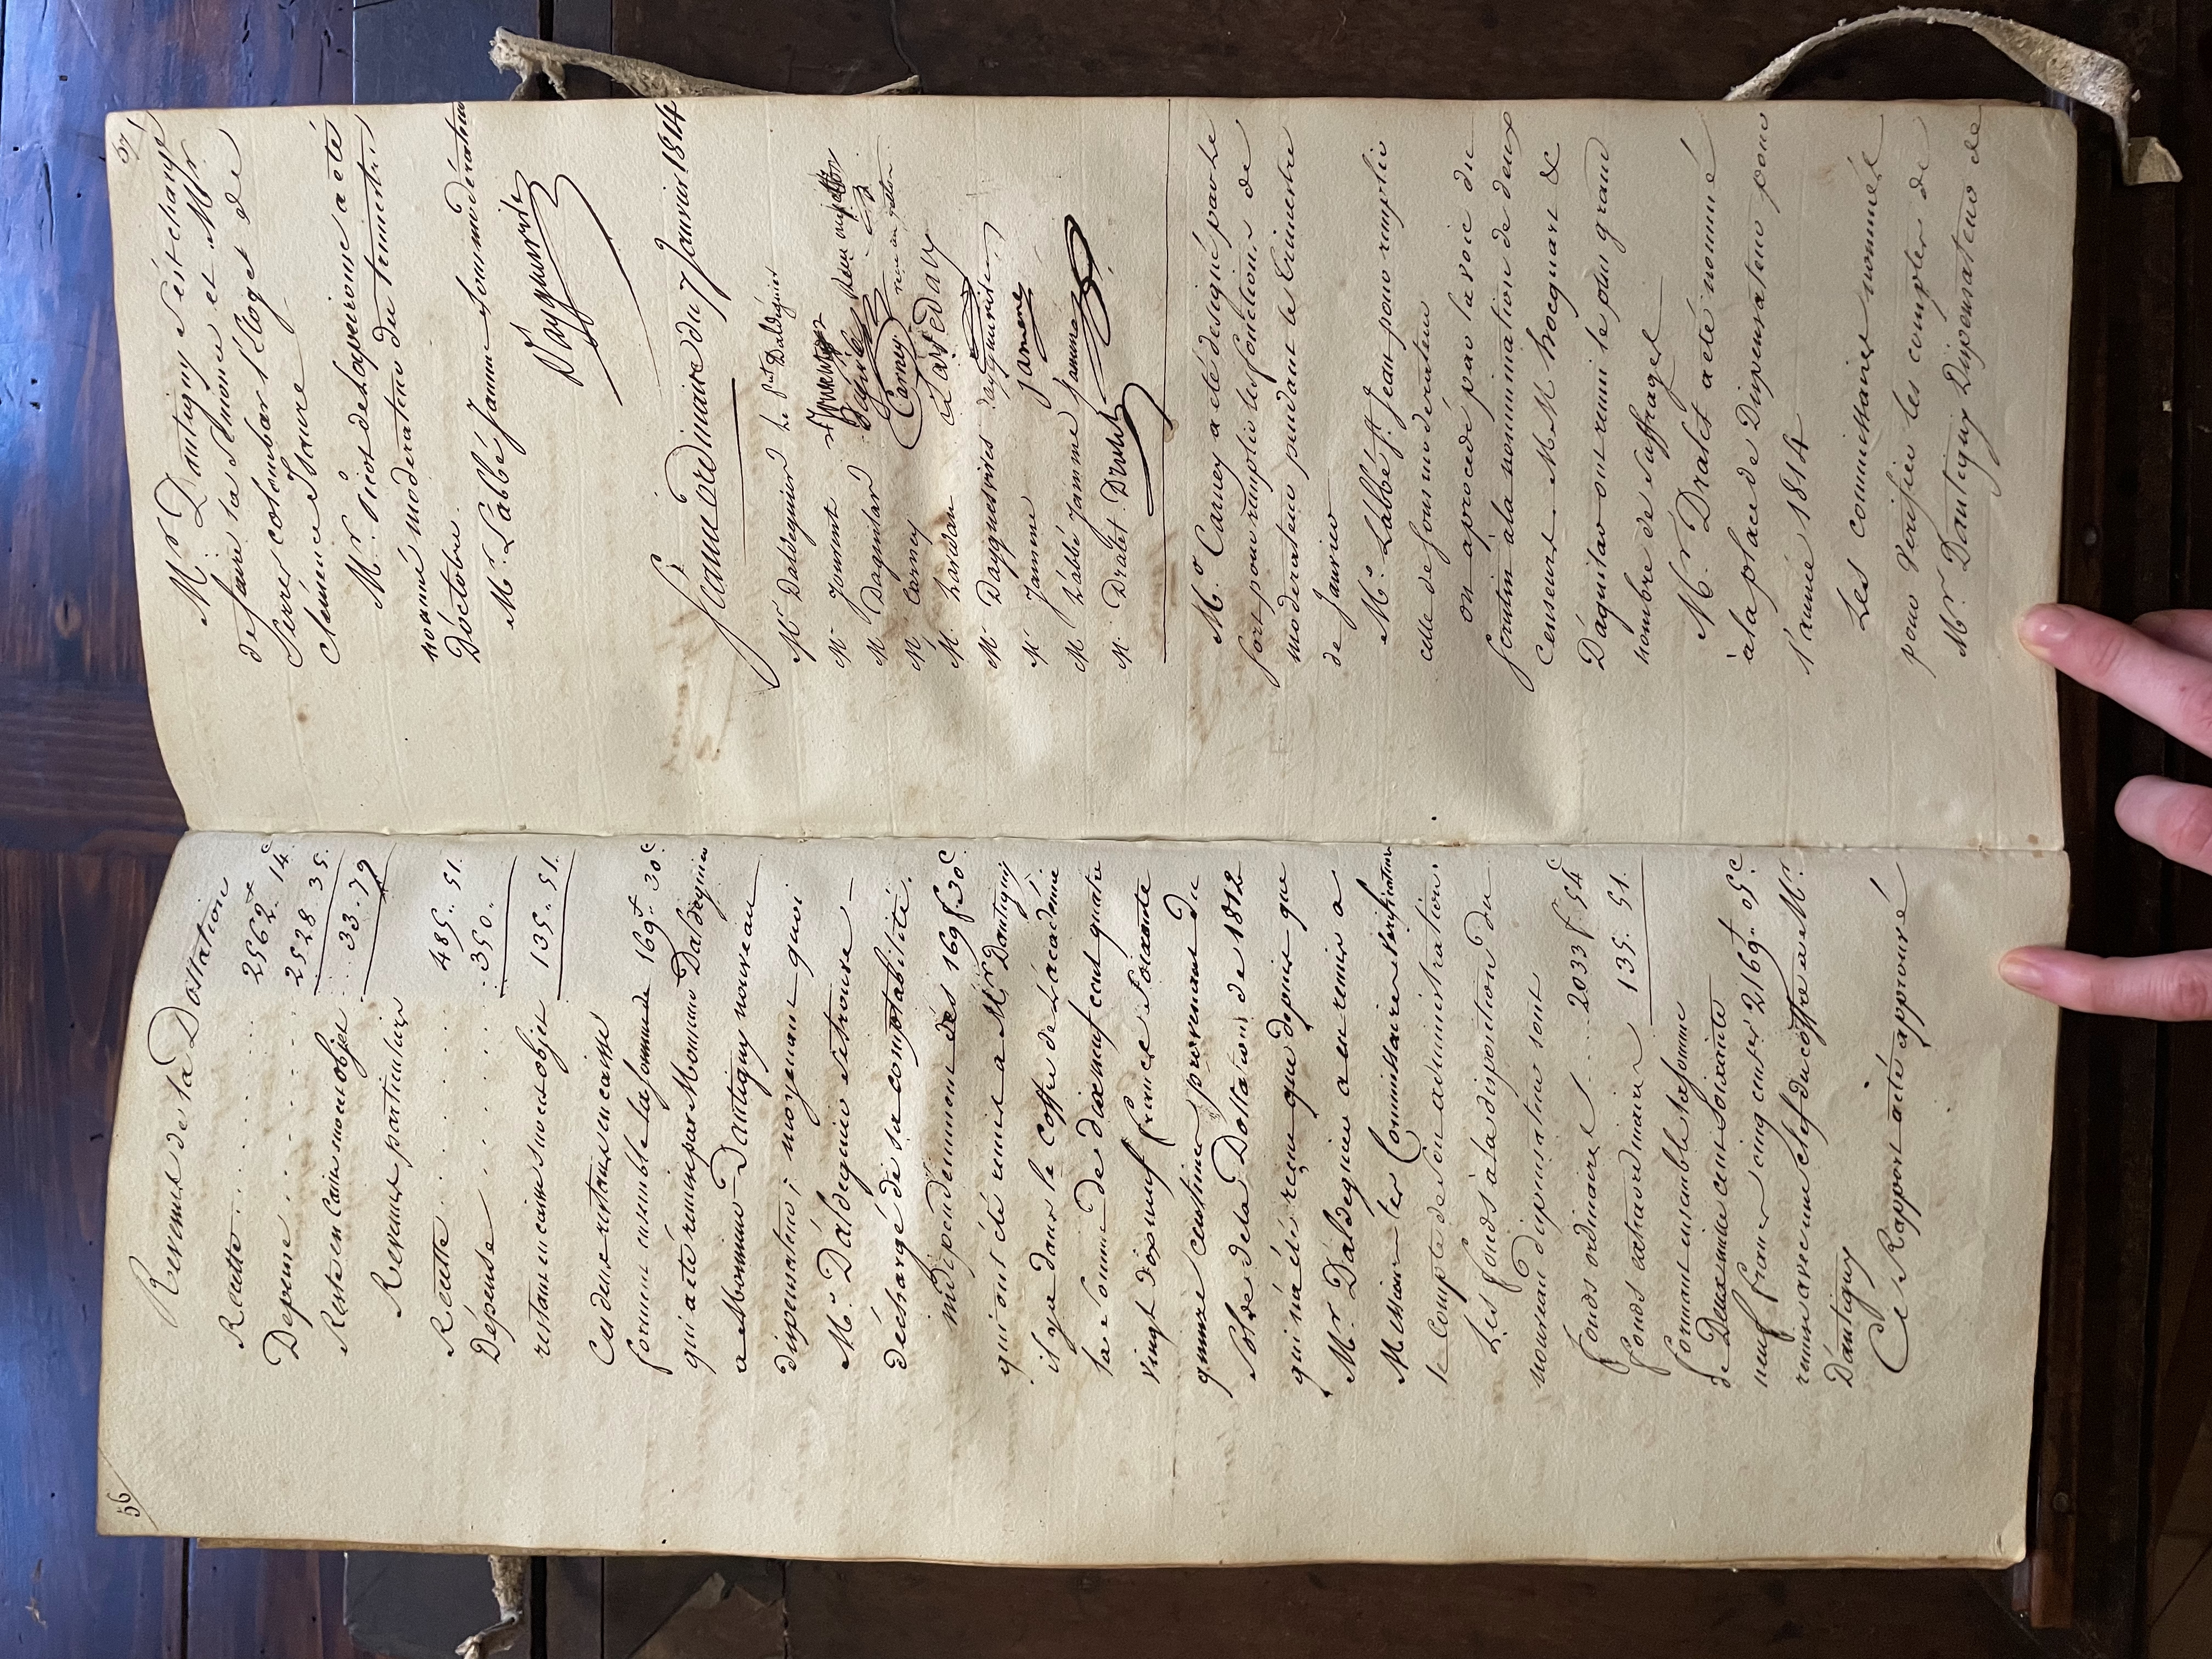 56
Revenus de la Dottation
Recette . . . . . . 2562.f 14.c
Depense . . . . . . 2528. 35.
Reste en caisse sur cet objet . . . 33. 79
Revenus particuliers
Recette . . . . . 485. 51.
Dépense . . . . . 350.
restant en caisse sur cet objet 135. 51.
Ces deux restans en caisse
forment ensemble la somme de 169.f 30c
qui a été remise par Monsieur Daldeguier
a Monsieur Dantigny nouveau
dispensateur; moyenant quoi
Mr. Daldeguier se trouve
déchargé de sa comptabilité.
indépendemment des 169 f 30c
qui ont été remis a Mr Dantigny,
il y a dans le coffre de L'académie
la somme de dix neuf cent quatre
vingt dix neuf francs soixante
quinze centimes provenant du
solde de la Dottation de 1812
qui n'a été reçue que depuis que
Mr. Daldeguier a eu remis a
Messieurs les Commissaires vérificateurs
le compte de son administration.
Les fonds a la disposition du
nouveau dispensateur sont
fonds ordinaires . . . 2033 f. 54c
fonds extraordinaires 135. 51.
formant ensemble la somme
de Deux mille cent soixante
neuf francs cinq cent.es 2169.f 05c
remis avec une clef du coffre a Mr.
Dantigny
Ce Rapport a été approuvé
57
Mr. Dantigny s'est chargé
de faire la Semonce et Mr
Serres colombars l'Eloge de
Clémence Isaure
Mr. Picot de Lapeirouse a été
nommé modérateur du trimestre
D'octobre.
Mr. L'abbé Jamme sousmodérateur
Dayguevives
Séance ordinaire du 7 Janvier 1814
Mr Daldeguier Le Pnt Daldéguier
Mr Jouvent
M Daguilar
M. Carney Carney
M. Lavedan Lavedan
Mr Dayguesvives Dayguevives
Mr Jamme Jamme
M L'abbé Jamme Jamme
M. Dralet. Dralet
Mr. Carney a été désigné par le
sort pour remplir les fonctions de
modérateur pendant le trimestre
de Janvier
Mr. L'abbé St. Jean pour remplir
celle de sous moderateur
on a procédé par la voie du
scrutin à la nommination de deux
Censeurs. MM hocquart &
D'aguilar ont reuni le plus grand
nombre de suffrages
Mr. Dralet a été nommé
à la place de Dispensateur pour
l'année 1814
Les commissaires nommés
pour vérifier les comptes de
Mr. Dantigny Dispensateur de